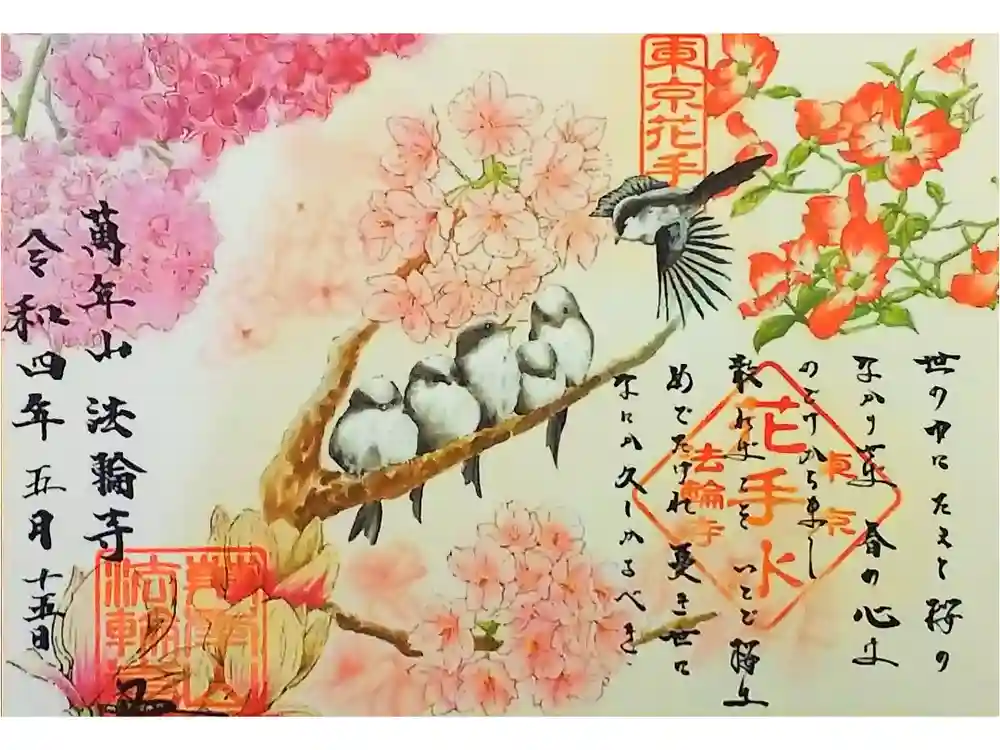 東京花手
世の中にたえて桜の
なかりせば 春の心は
のどけからまし
散ればこそ いとど桜は
めでたけれ 憂き世に
なにか久しかるべき
東京
花手水
法輪寺
萬年山 法輪寺
令和四年 五月 十五日